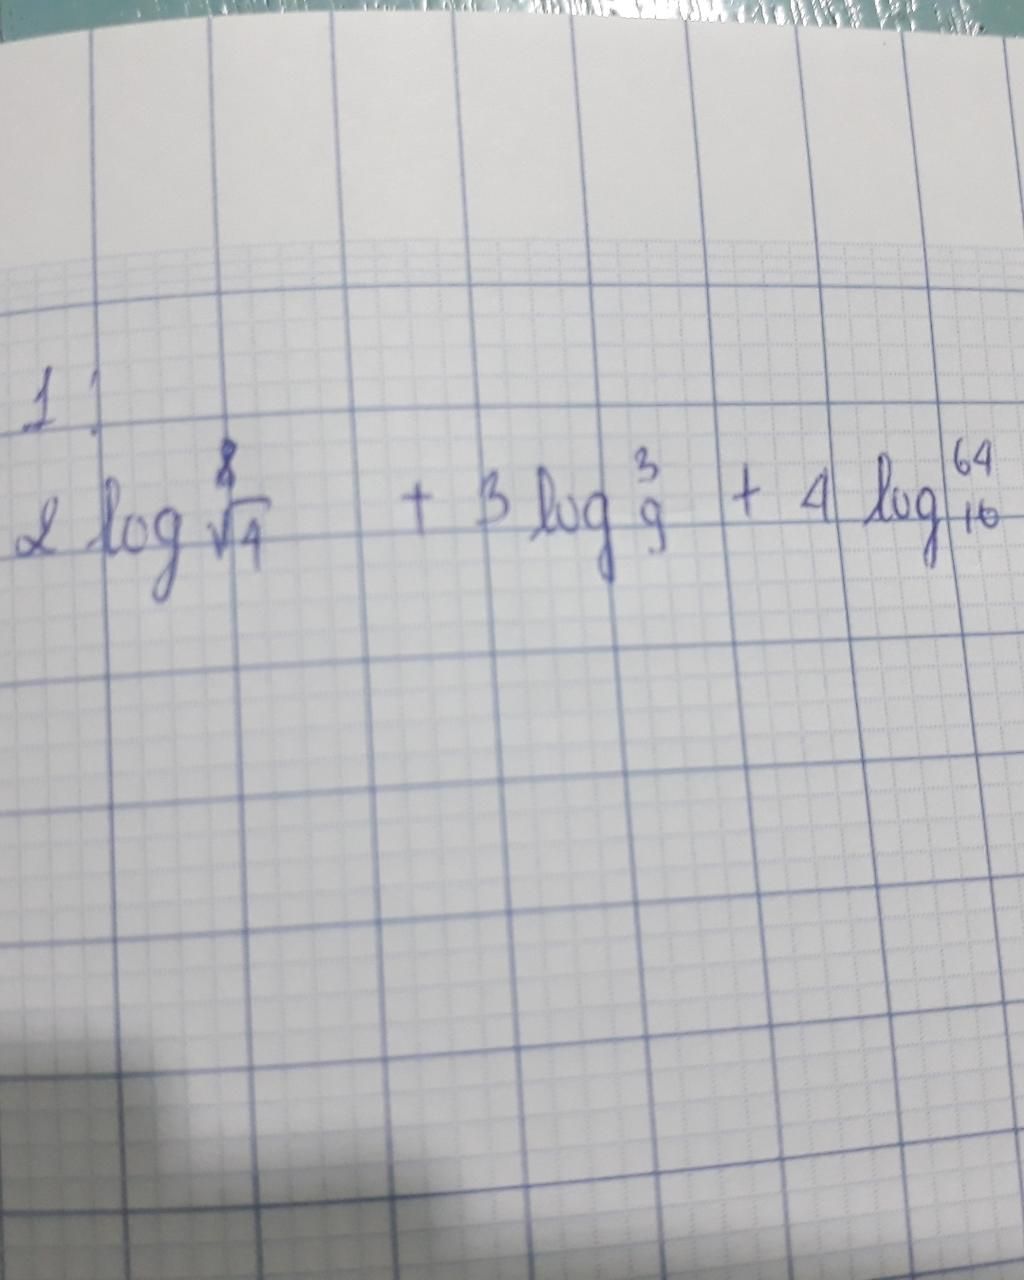 1)
2 log √4 8 + 3 log 9 3 + 4 log 16 64